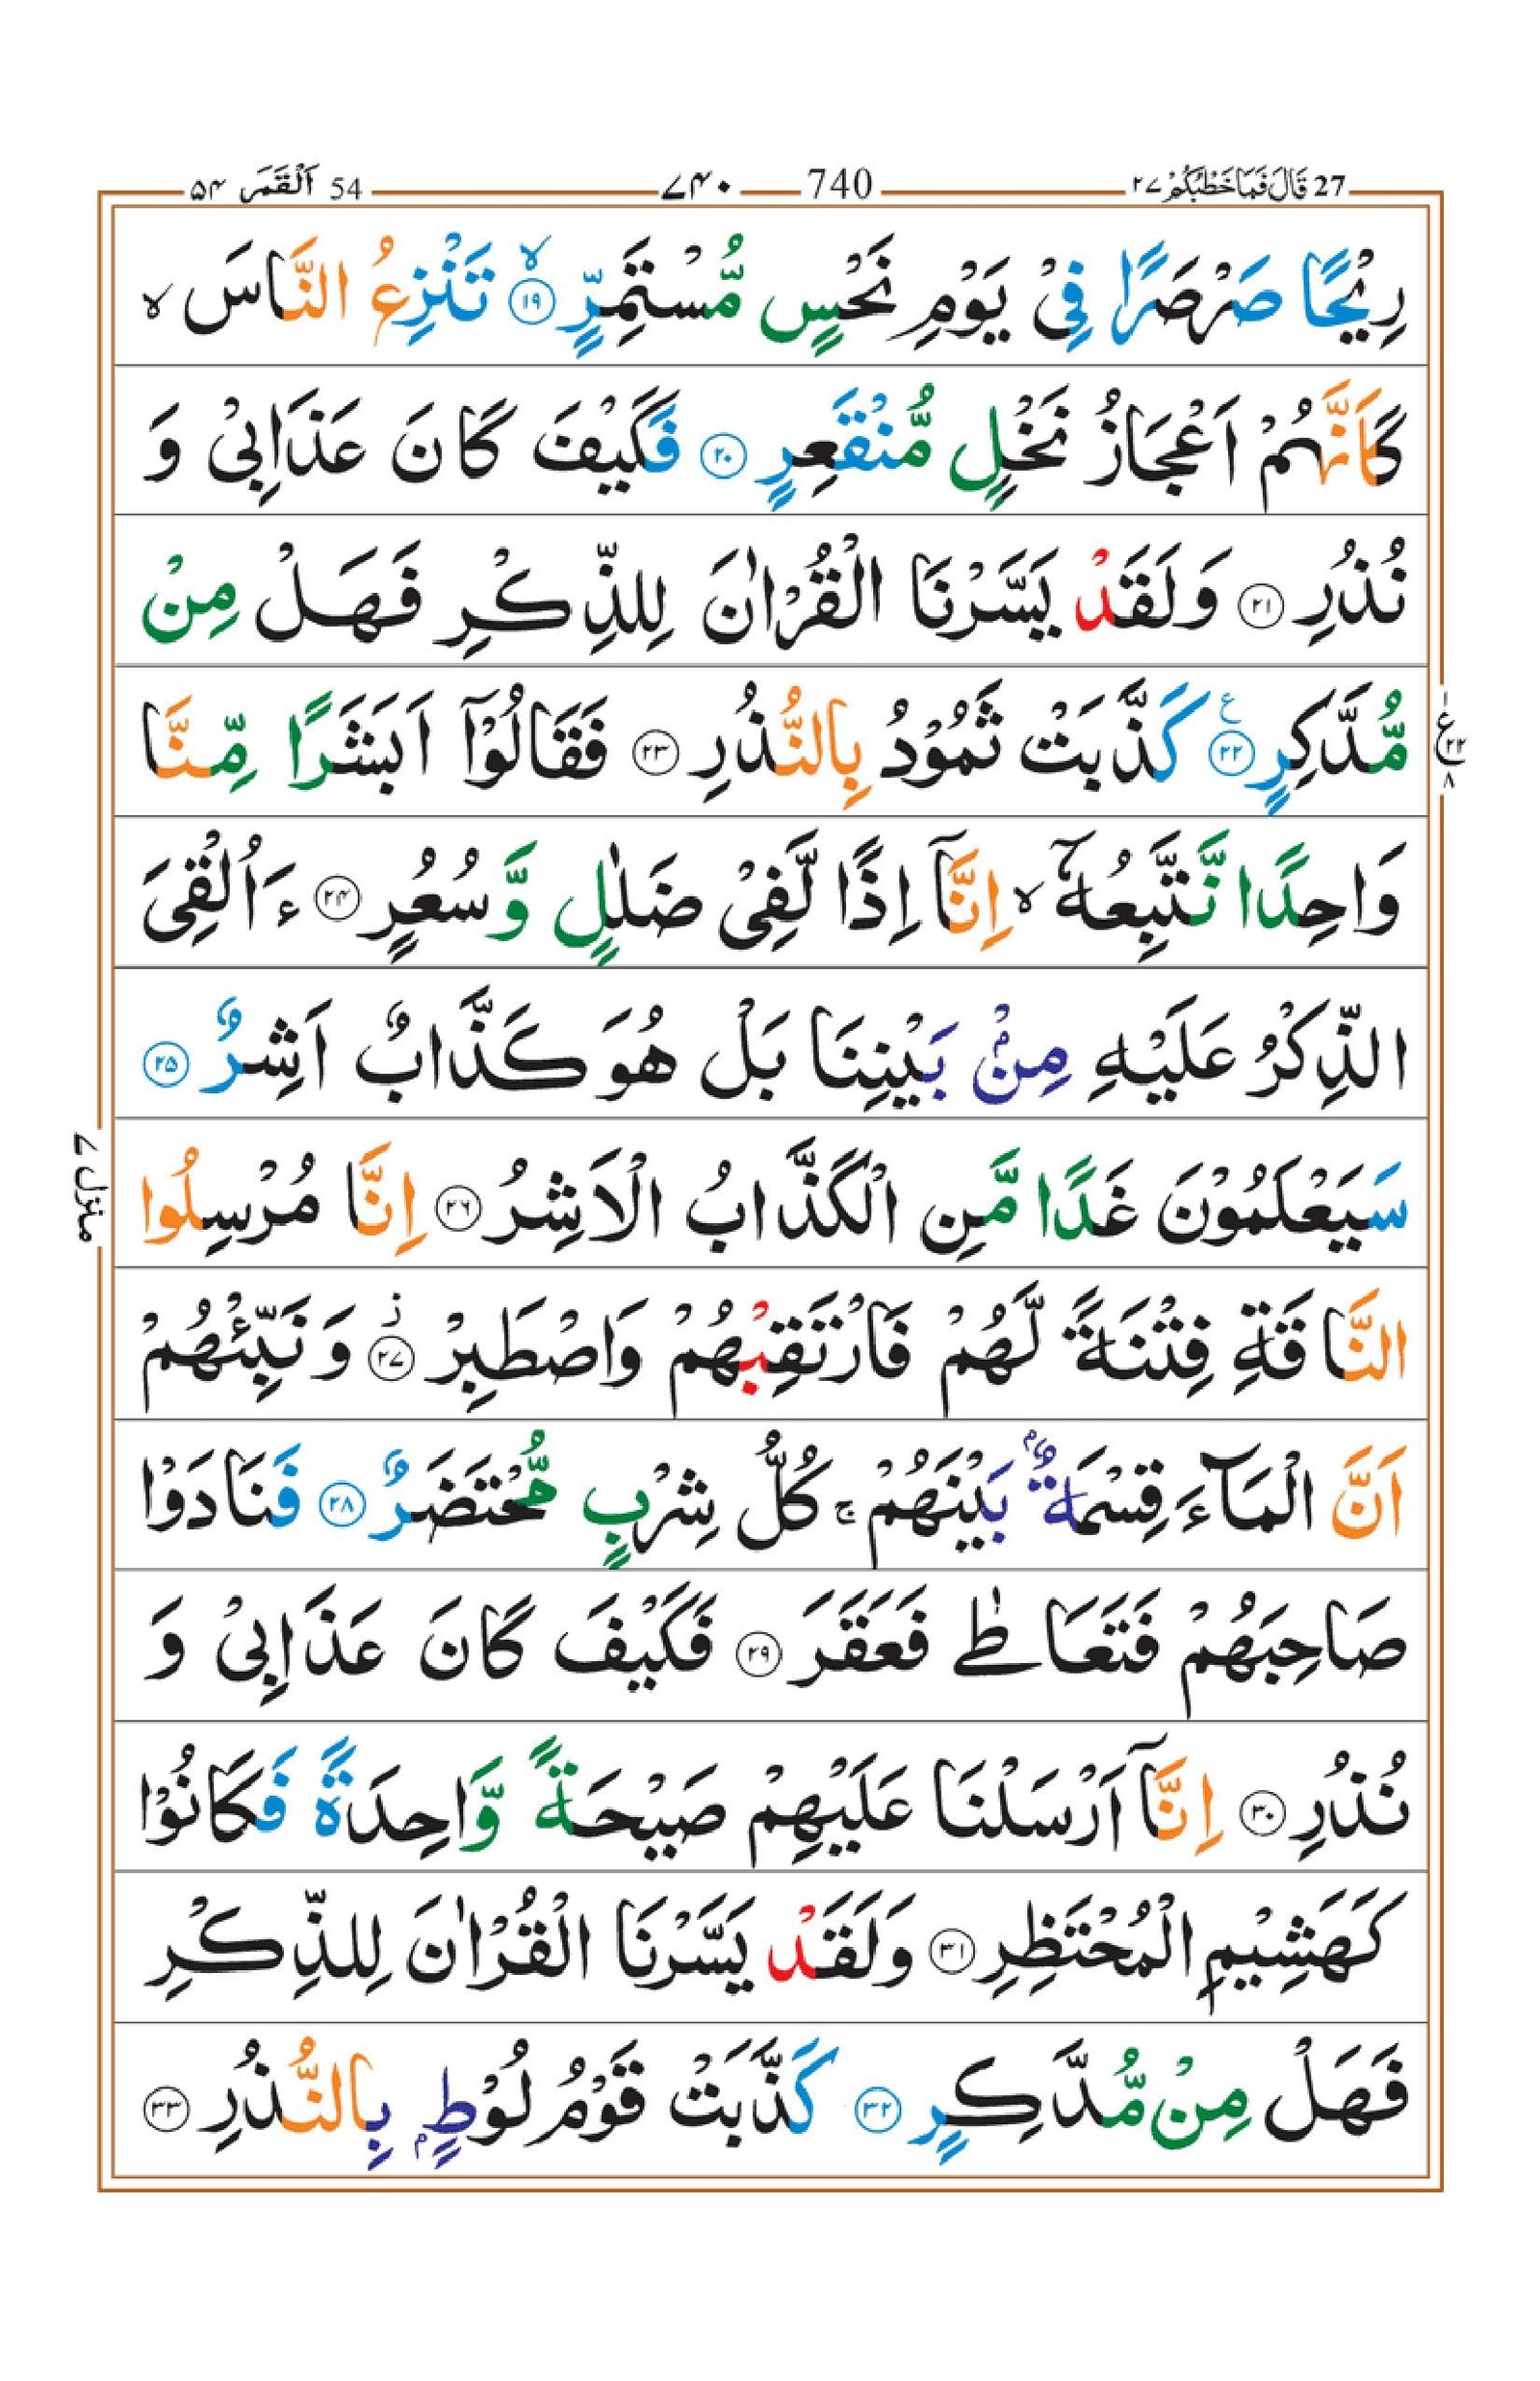 27 قَالَ فَمَا خَطْبُكُمْ ٢٧ 740 ٧٤٠ 54 اَلْقَمَر ٥٤
رِيْحًا صَرْصَرًا فِيْ يَوْمِ نَحْسٍ مُّسْتَمِرٍّ ۙ﴿١٩﴾ تَنْزِعُ النَّاسَ ۙ
كَاَنَّهُمْ اَعْجَازُ نَخْلٍ مُّنْقَعِرٍ ﴿٢٠﴾ فَكَيْفَ كَانَ عَذَابِيْ وَ
نُذُرِ ﴿٢١﴾ وَلَقَدْ يَسَّرْنَا الْقُرْاٰنَ لِلذِّكْرِ فَهَلْ مِنْ
مُّدَّكِرٍ ﴿٢٢﴾ ع كَذَّبَتْ ثَمُوْدُ بِالنُّذُرِ ﴿٢٣﴾ فَقَالُوْٓا اَبَشَرًا مِّنَّا
ع ٢٢ ٨
وَاحِدًا نَّتَّبِعُهٗٓ ۙ اِنَّآ اِذًا لَّفِيْ ضَلٰلٍ وَّسُعُرٍ ﴿٢٤﴾ ءَاُلْقِيَ
الذِّكْرُ عَلَيْهِ مِنْۢ بَيْنِنَا بَلْ هُوَ كَذَّابٌ اَشِرٌ ﴿٢٥﴾
سَيَعْلَمُوْنَ غَدًا مَّنِ الْكَذَّابُ الْاَشِرُ ﴿٢٦﴾ اِنَّا مُرْسِلُوا
منزل ٧
النَّاقَةِ فِتْنَةً لَّهُمْ فَارْتَقِبْهُمْ وَاصْطَبِرْ ﴿٢٧﴾ ز وَنَبِّئْهُمْ
اَنَّ الْمَآءَ قِسْمَةٌۢ بَيْنَهُمْ ۚ كُلُّ شِرْبٍ مُّحْتَضَرٌ ﴿٢٨﴾ فَنَادَوْا
صَاحِبَهُمْ فَتَعَاطٰى فَعَقَرَ ﴿٢٩﴾ فَكَيْفَ كَانَ عَذَابِيْ وَ
نُذُرِ ﴿٣٠﴾ اِنَّآ اَرْسَلْنَا عَلَيْهِمْ صَيْحَةً وَّاحِدَةً فَكَانُوْا
كَهَشِيْمِ الْمُحْتَظِرِ ﴿٣١﴾ وَلَقَدْ يَسَّرْنَا الْقُرْاٰنَ لِلذِّكْرِ
فَهَلْ مِنْ مُّدَّكِرٍ ﴿٣٢﴾ كَذَّبَتْ قَوْمُ لُوْطٍۭ بِالنُّذُرِ ﴿٣٣﴾